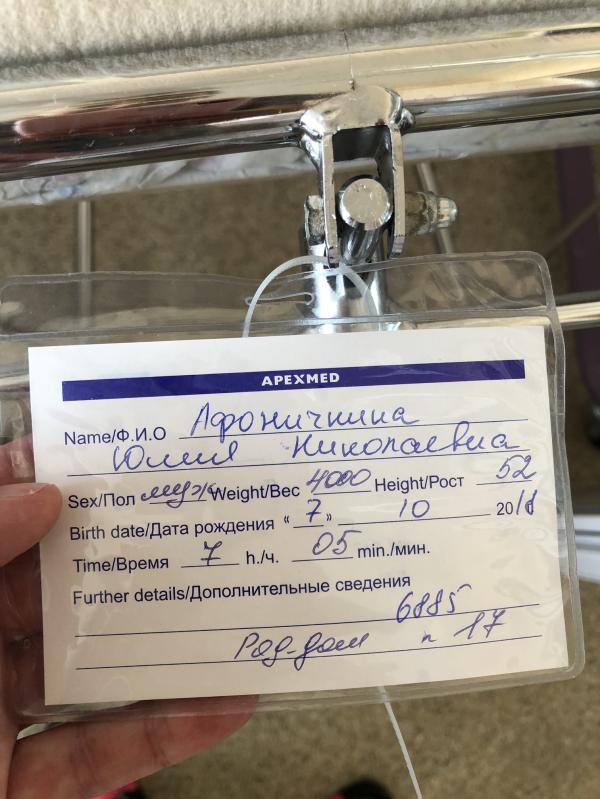 APEXMED
Name/Ф.И.О Афоничкина
Юлия Николаевна
Sex/Пол муж Weight/Вес 4000 Height/Рост 52
Birth date/Дата рождения “ 7 ” 10 2018
Time/Время 7 h./ч. 05 min./мин.
Further details/Дополнительные сведения
6885
Род-дом n 17